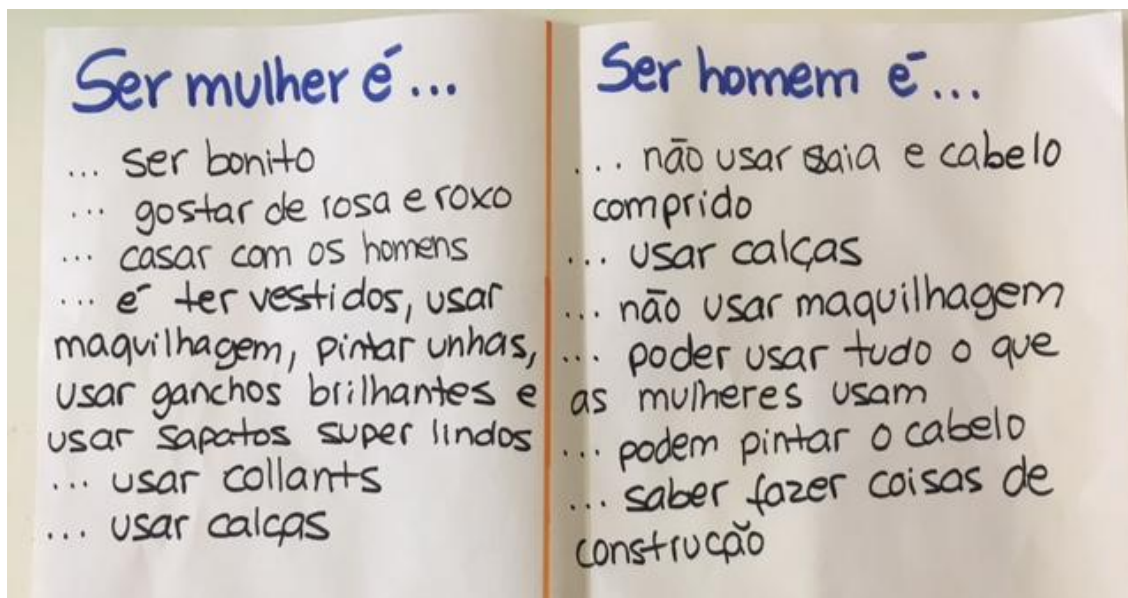 Ser mulher é...
... ser bonito
... gostar de rosa e roxo
... casar com os homens
... é ter vestidos, usar
maquilhagem, pintar unhas,
usar ganchos brilhantes e
usar sapatos super lindos
... usar collants
... usar calças
Ser homem é...
... não usar saia e cabelo
comprido
... usar calças
... não usar maquilhagem
... poder usar tudo o que
as mulheres usam
... podem pintar o cabelo
... saber fazer coisas de
construção